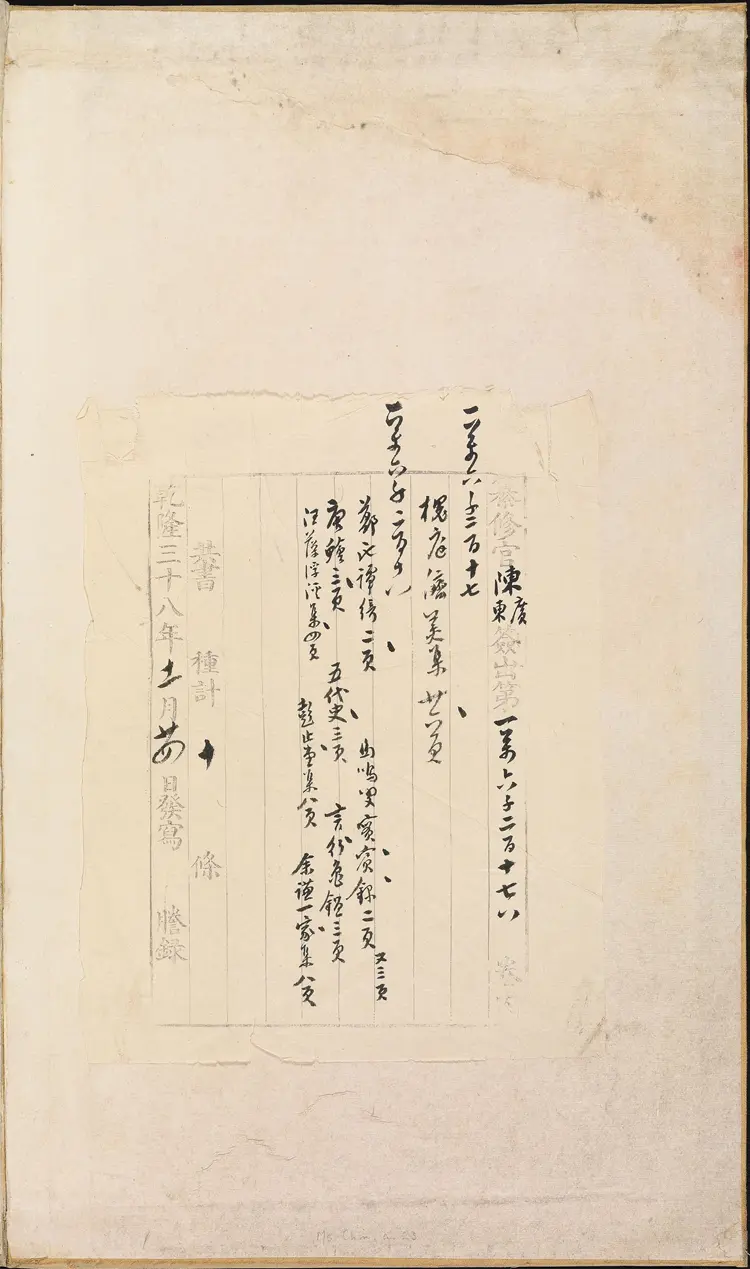 纂修官陳廣東簽出第一萬六千二百十七八卷
一萬六千二百十七
槐庭濟美集廿八頁
一萬六千二百十八
鄭氏譚綺二頁 虫鳴叟賓賓錄二頁又三頁
唐鑑三頁 五代史三頁 言行龜鑑三頁
汪藻浮溪集四頁 彭止堂集八頁 余謙一家集八頁
共書 種計十 條
乾隆三十八年十一月廿四日發寫 謄錄
Ms Chin. a. 23